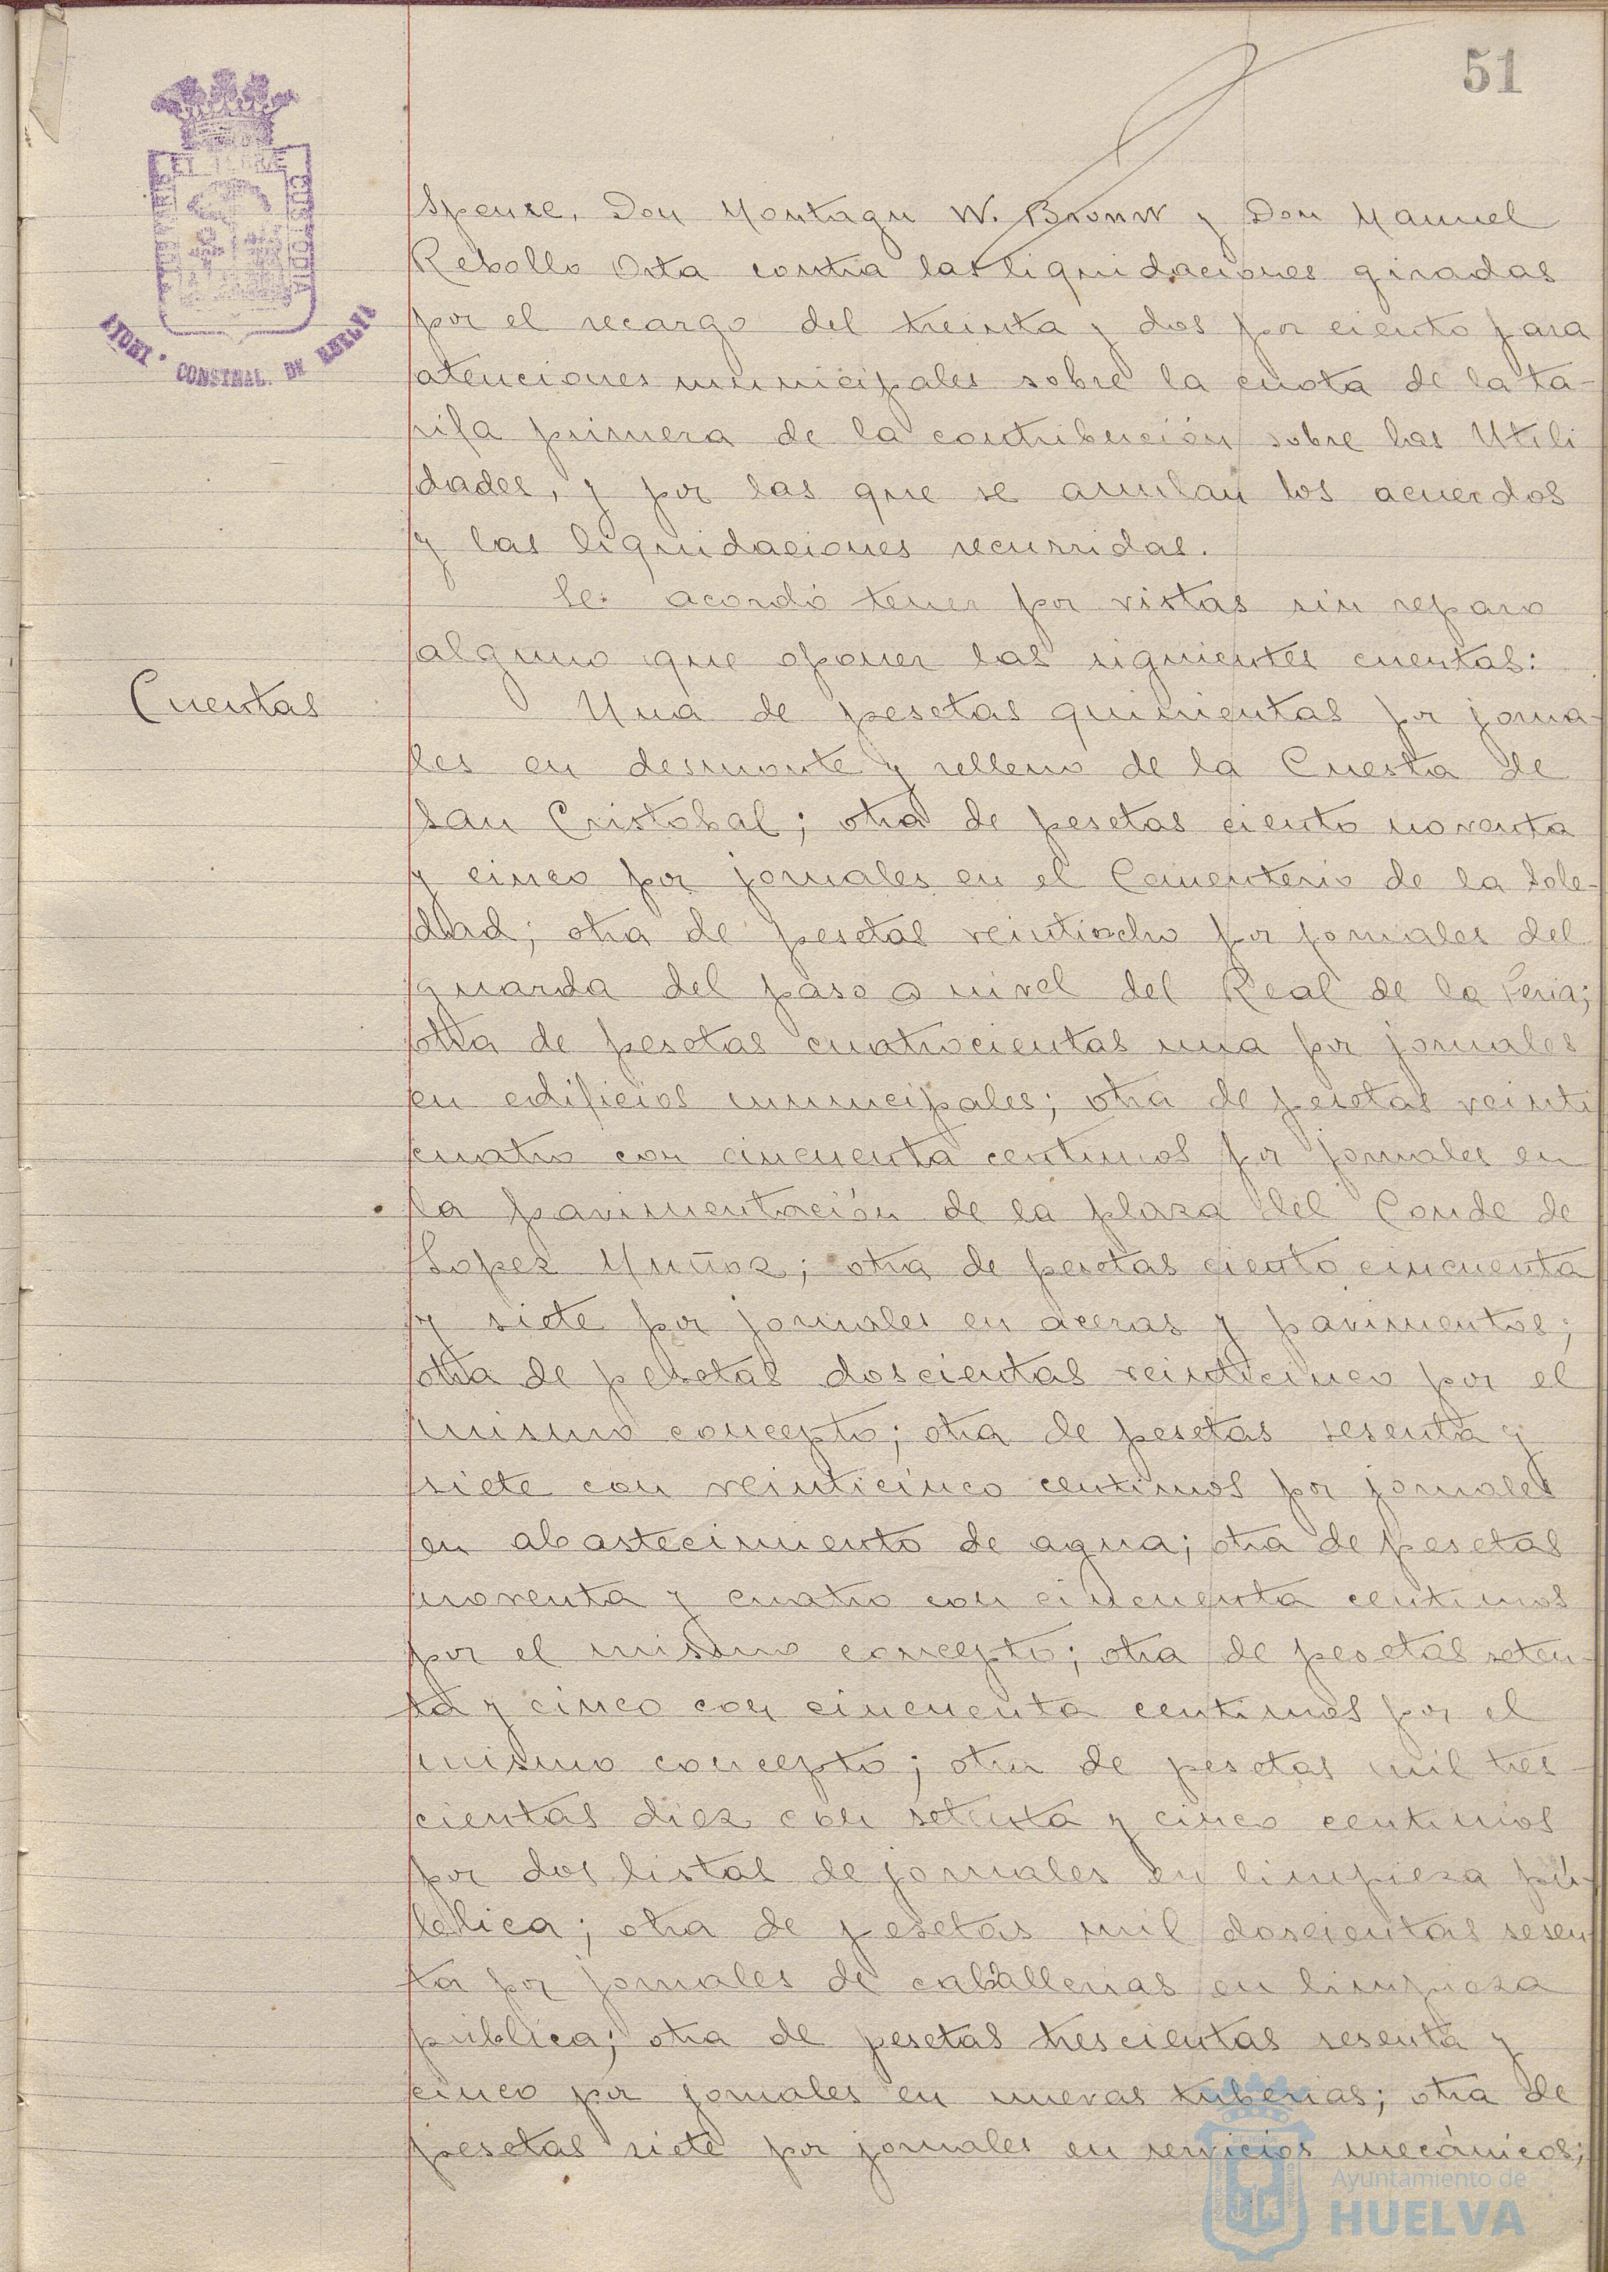 51
Spense, Don Montagu W. Brown y Don Manuel
Rebollo Orta contra las liquidaciones giradas
por el recargo del treinta y dos por ciento para
atenciones municipales sobre la cuota de la ta-
rifa primera de la contribución sobre las Utili
dades, y por las que se anulan los acuerdos
y las liquidaciones recurridas.
Se acordó tener por vistas sin reparo
alguno que oponer las siguientes cuentas:
Cuentas
Una de pesetas quinientas por jorna-
les en desmonte y relleno de la Cuesta de
San Cristobal; otra de pesetas ciento noventa
y cinco por jornales en el Cementerio de la Sole-
dad; otra de pesetas veintiocho por jornales del
guarda del paso a nivel del Real de la Feria;
otra de pesetas cuatrocientas una por jornales
en edificios municipales; otra de pesetas veinti
cuatro con cincuenta centimos por jornales en
la pavimentación de la plaza del Conde de
Lopez Muñoz; otra de pesetas ciento cincuenta
y siete por jornales en aceras y pavimentos;
otra de pesetas doscientas veinticinco por el
mismo concepto; otra de pesetas sesenta y
siete con veinticinco centimos por jornales
en abastecimiento de agua; otra de pesetas
noventa y cuatro con cincuenta centimos
por el mismo concepto; otra de pesetas seten-
ta y cinco con cincuenta centimos por el
mismo concepto; otra de pesetas mil tres-
cientas diez con setenta y cinco centimos
por dos listas de jornales en limpieza pú-
blica; otra de pesetas mil doscientas sesen-
ta por jornales de caballerias en limpieza
publica; otra de pesetas trescientas sesenta y
cinco por jornales en nuevas tuberias; otra de
pesetas siete por jornales en servicios mecánicos;
CUSTODIA
CONSTNAL. DE HUELVA
Ayuntamiento de
HUELVA